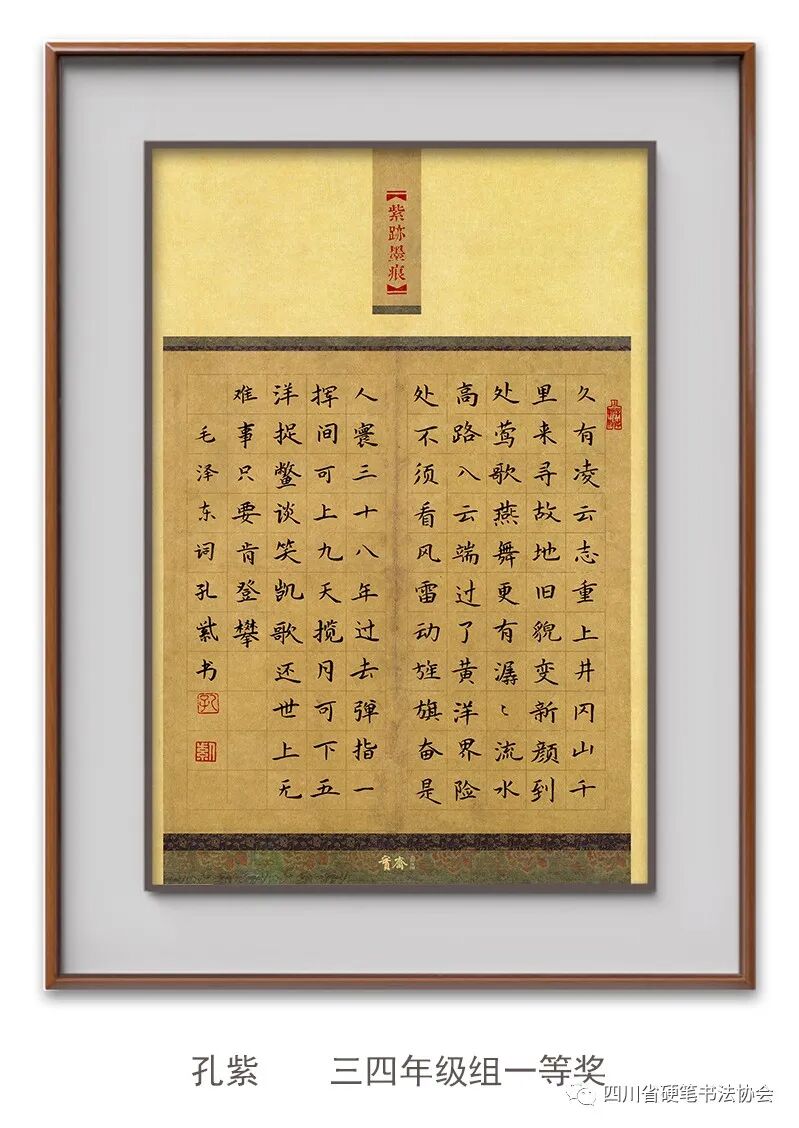 【紫跡墨痕】
久有凌云志重上井冈山千
里来寻故地旧貌变新颜到
处莺歌燕舞更有潺〻流水
高路入云端过了黄洋界险
处不须看风雷动旌旗奋是
人寰三十八年过去弹指一
挥间可上九天揽月可下五
洋捉鳖谈笑凯歌还世上无
难事只要肯登攀
毛泽东词孔紫书
孔紫 三四年级组一等奖
四川省硬笔书法协会